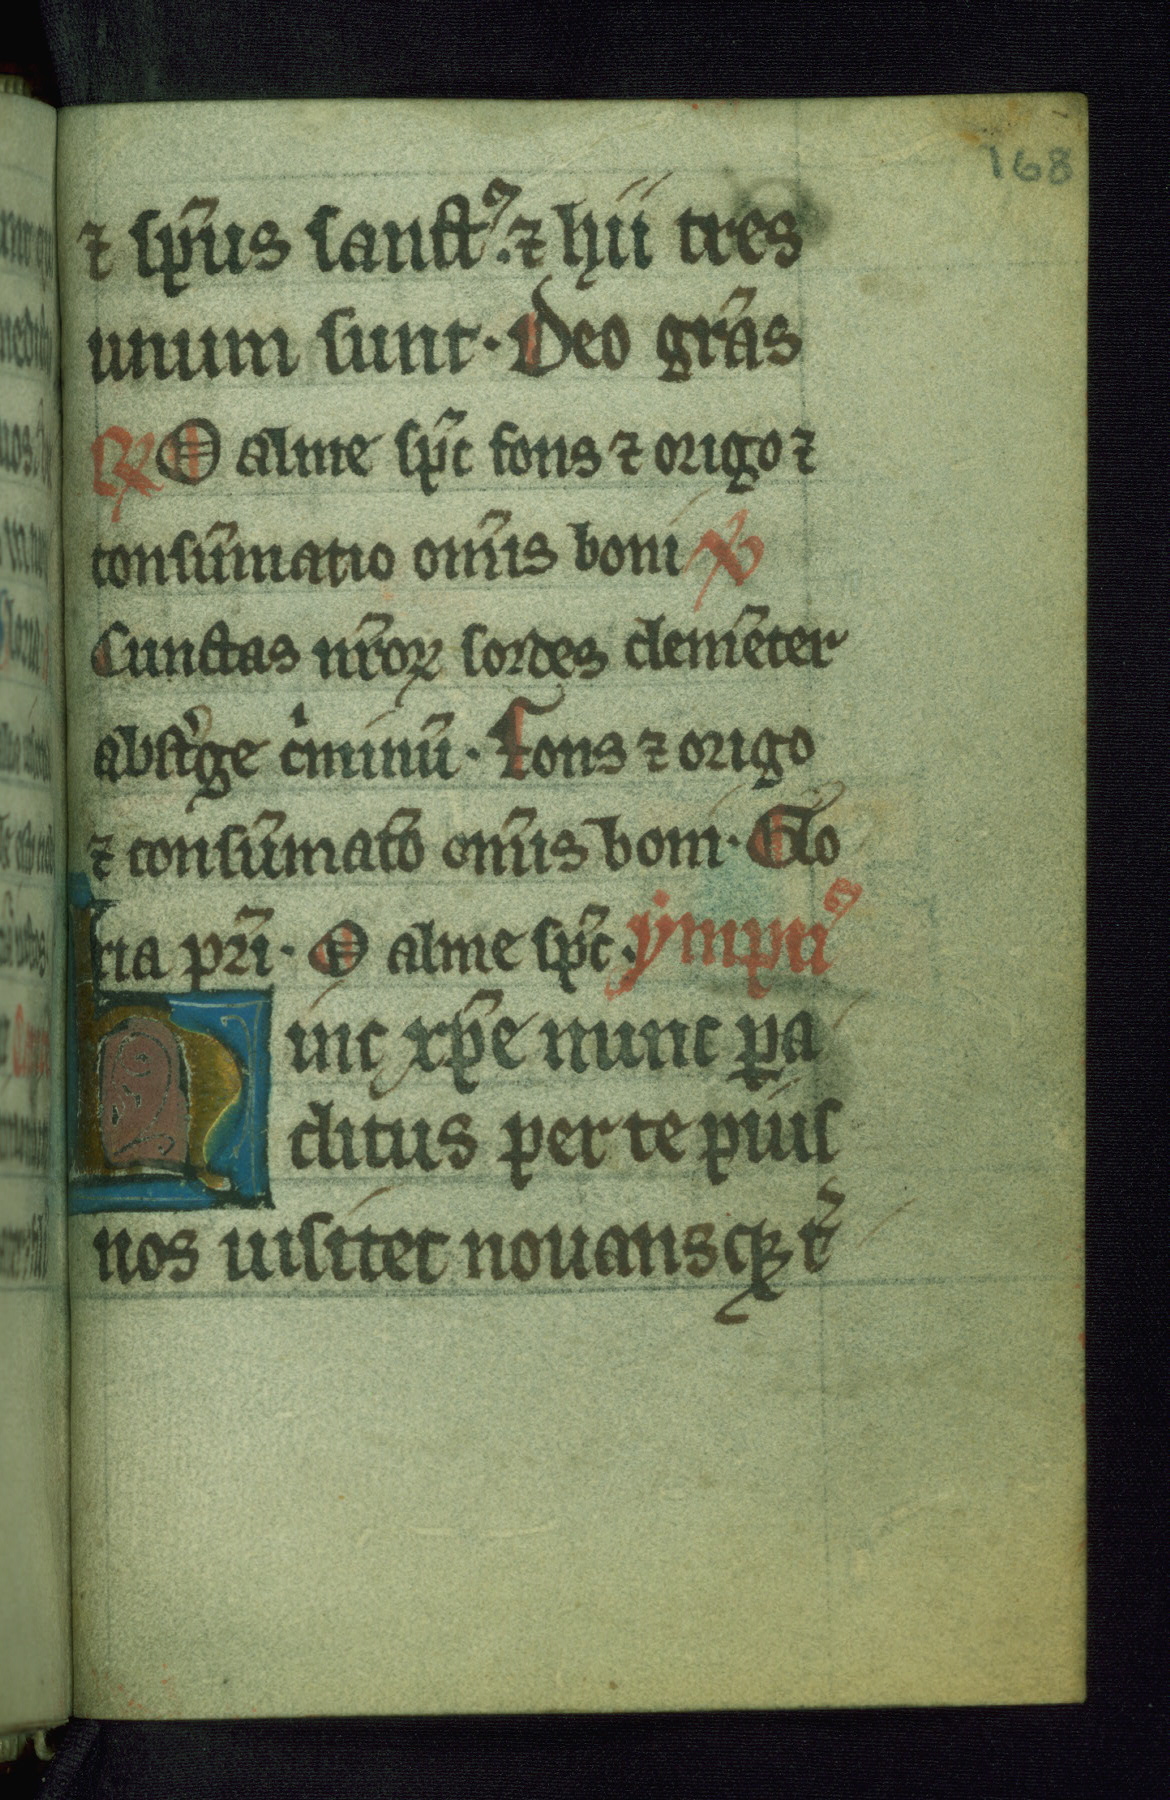 168
⁊ sp̃us sanctꝰ. ⁊ hii tres
unum sunt. Deo gr̃as
R̸ O alme sp̃c fons ⁊ origo ⁊
consũmatio om̃is boni ℣
Cunctas nr̃oꝝ sordes clemẽter
abstͥge cͥminũ. Fons ⁊ origo
⁊ consũmatõ om̃is boni. Glo
ria pr̃i. O alme sp̃c. ympnꝰ
Hinc xp̃e nunc ꝑa
clitus per te piuſ
nos uisitet nouansqꝫ t̃